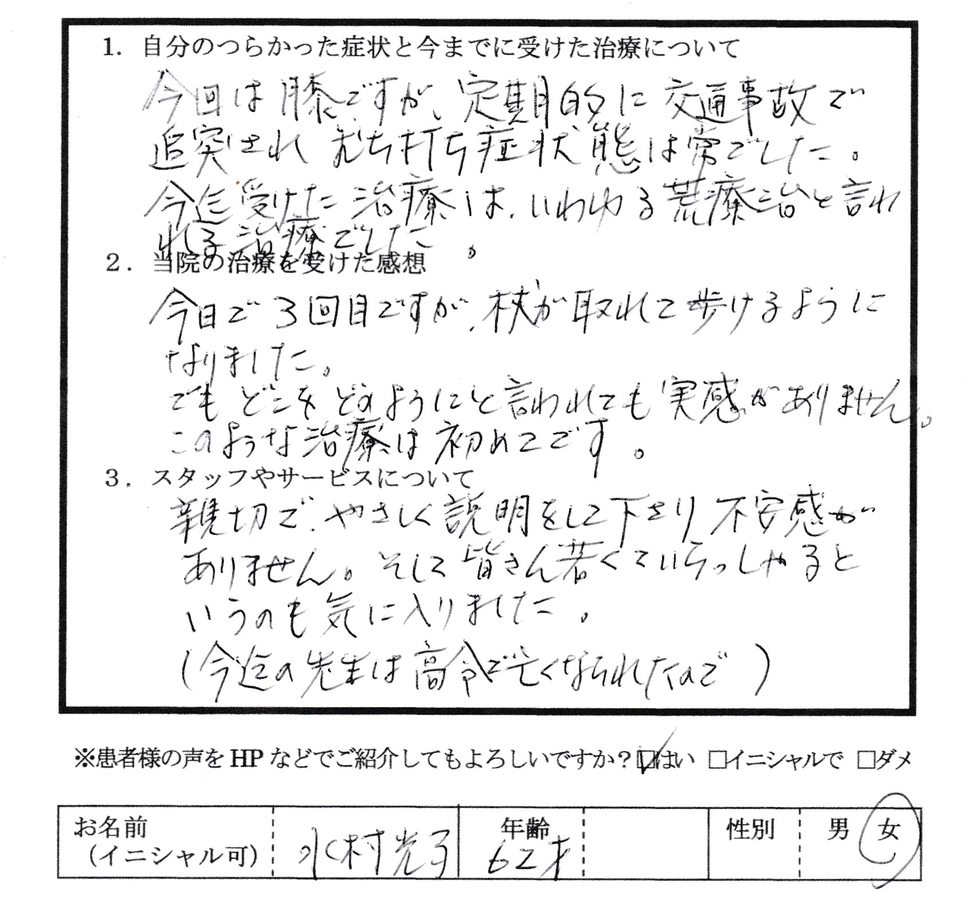 1. 自分のつらかった症状と今までに受けた治療について
今回は膝ですが、定期的に交通事故で
追突され むち打ち症状態は常でした。
今迄受けた治療は、いわゆる荒療治と言わ
れる治療でした。
2. 当院の治療を受けた感想
今日で3回目ですが、杖が取れて歩けるように
なりました。
でも どこを どのようにと言われても実感がありません。
このような治療は初めてです。
3. スタッフやサービスについて
親切で、やさしく説明をして下さり 不安感が
ありません。そして皆さん若くていらっしゃると
いうのも気に入りました。
(今迄の先生は高令で亡くなられたので)
※患者様の声を HP などでご紹介してもよろしいですか?☑はい □イニシャルで □ダメ
お名前 水村光子 年齢 62才 性別 男 女
(イニシャル可)